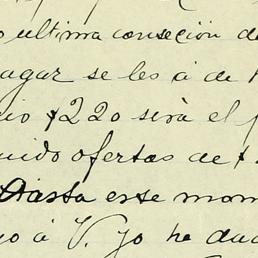 ultima conseción de
agar se les á de
$220 serà el p
uido ofertas de $
Hasta ese mom
o á V. yo he dad